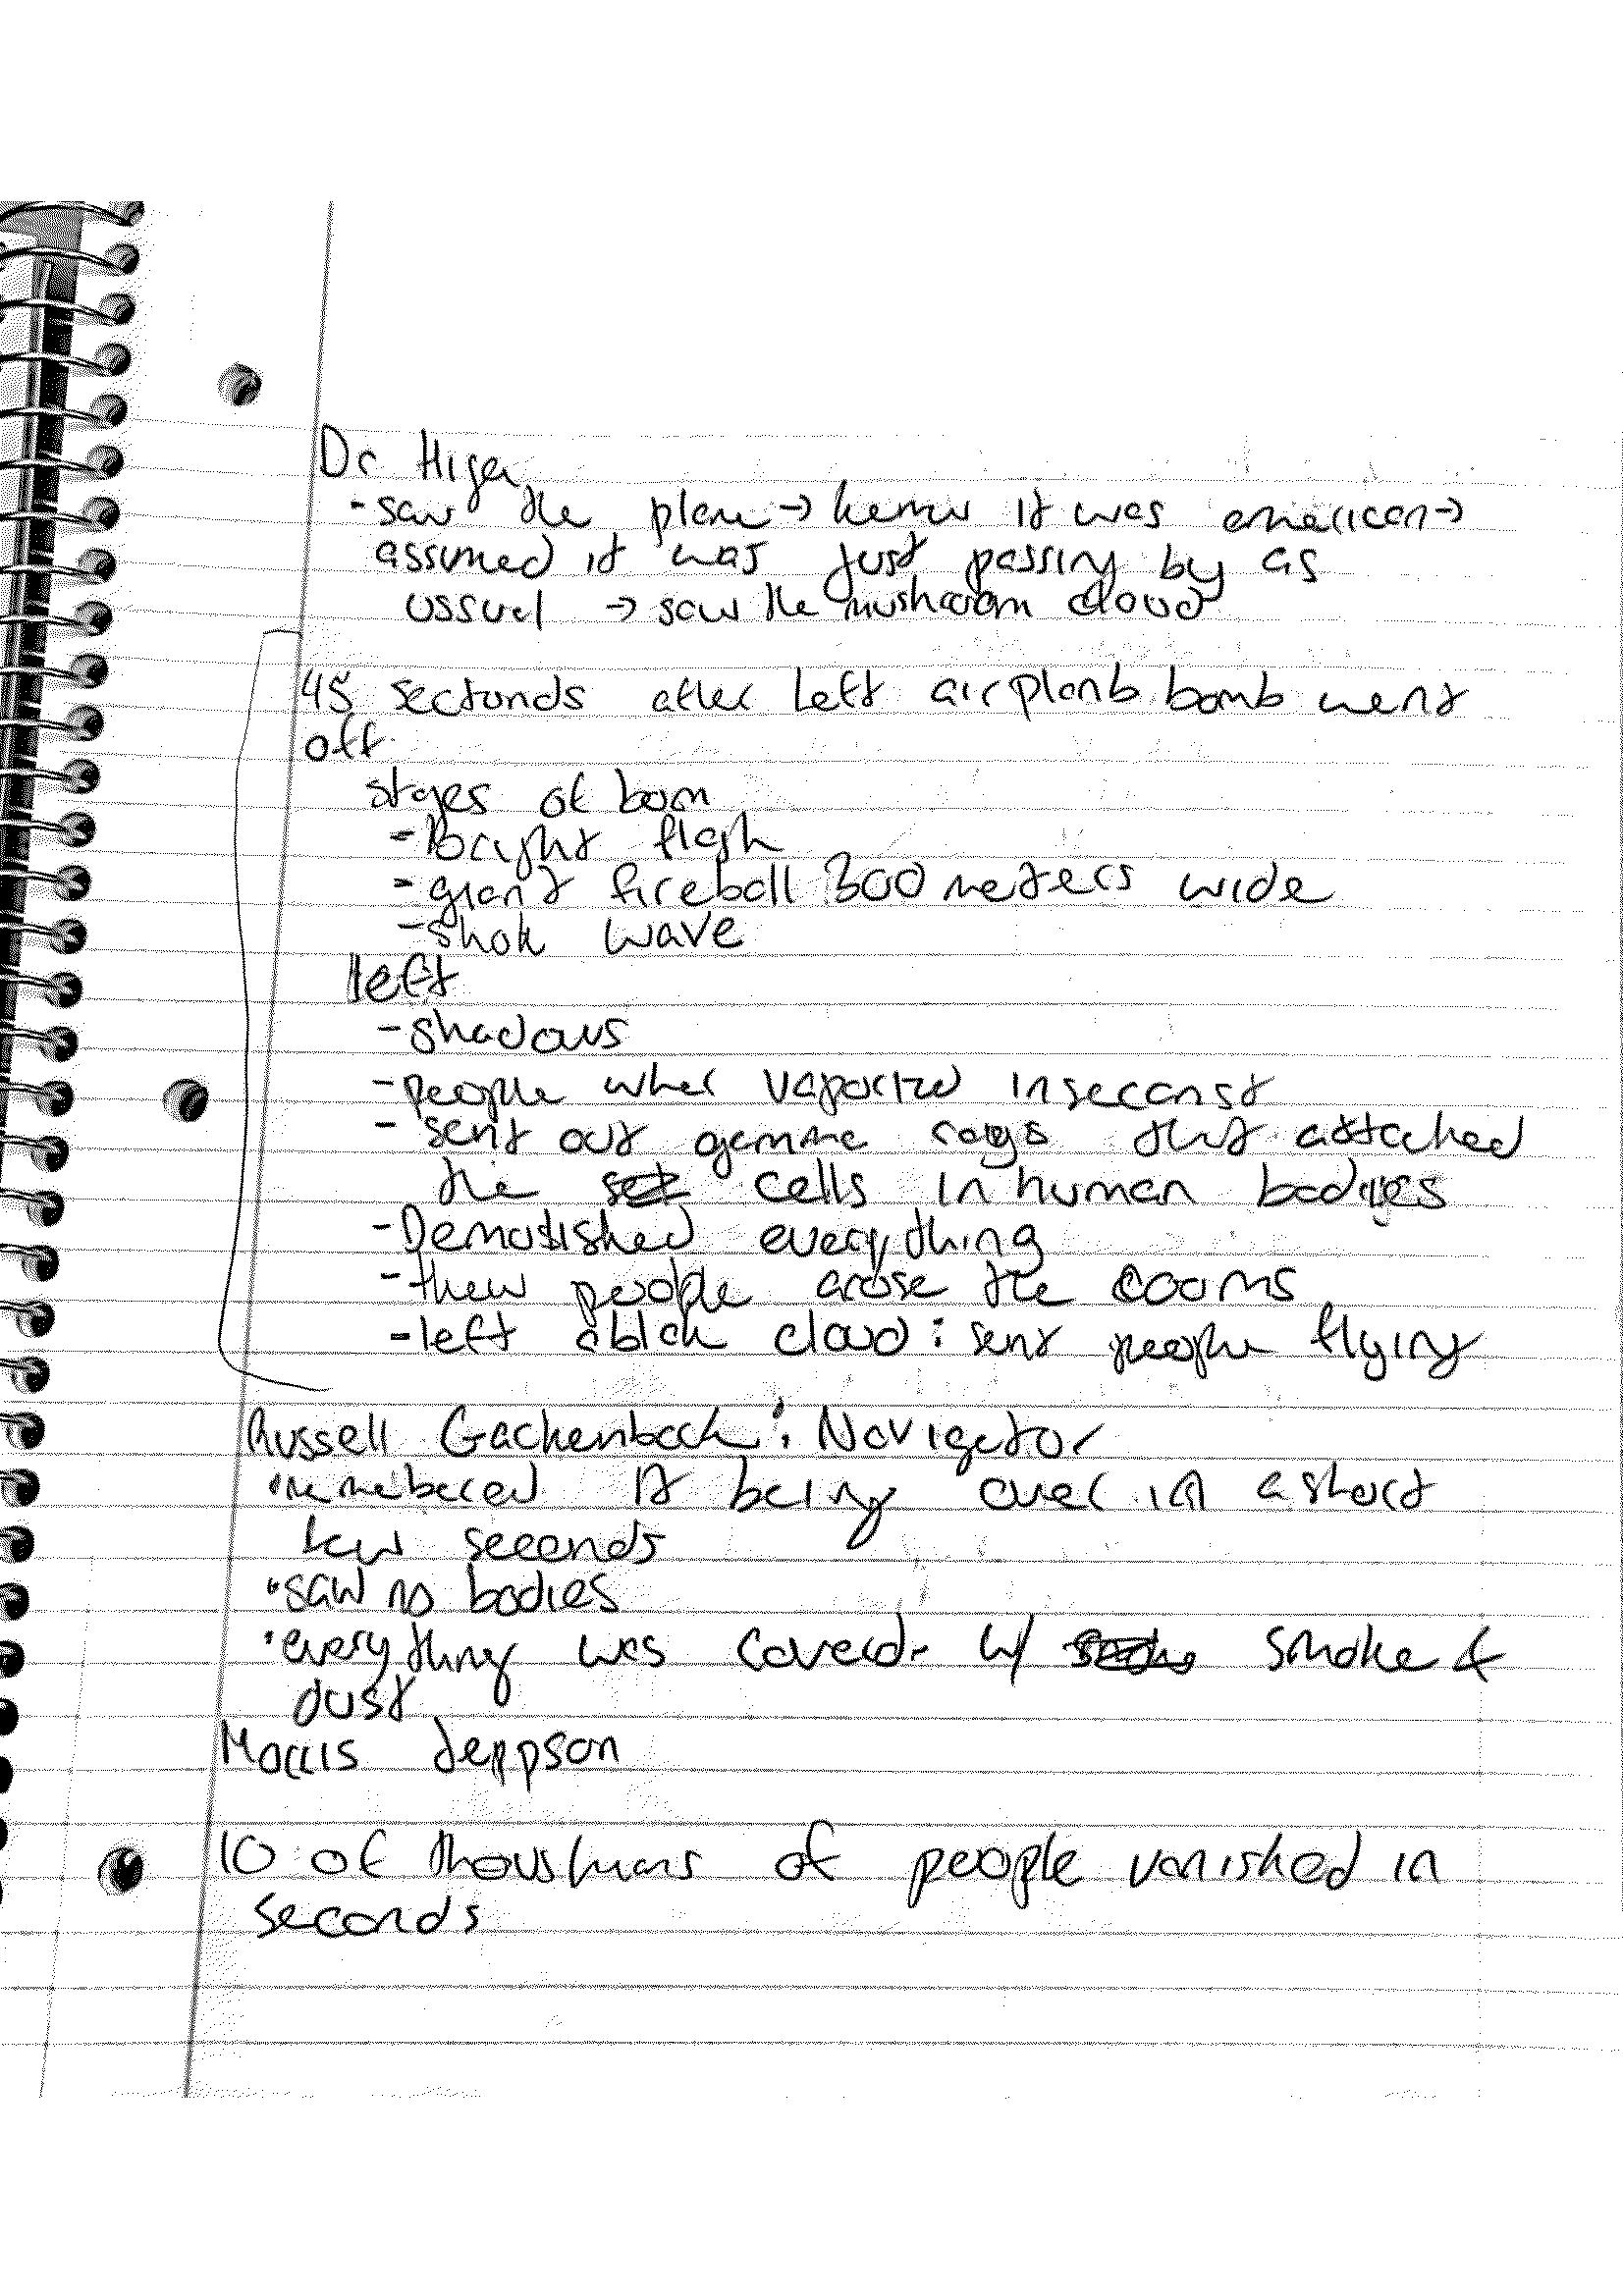 Dr Higa
- saw the plane → kenw it was american →
assumed it was just passing by as
ussuel → saw the mushroom cloud
45 sectunds after left airplanb bomb went
off
stages of bom
- bright flash
- giant fireball 300 meters wide
- shok wave
left
- shadows
- people wher in
- sent out gamme rays that attached
the cells in human bodies
- Demolished everything
- thew people arose the rooms
- left a blck cloud : sent people flying
Russell Gackenback : Navigator
• remebered it being over in a short
few seconds
• saw no bodies
• everything was coverd w/ smoke &
dust
Morris Jeppson
10 of of people vanished in
seconds